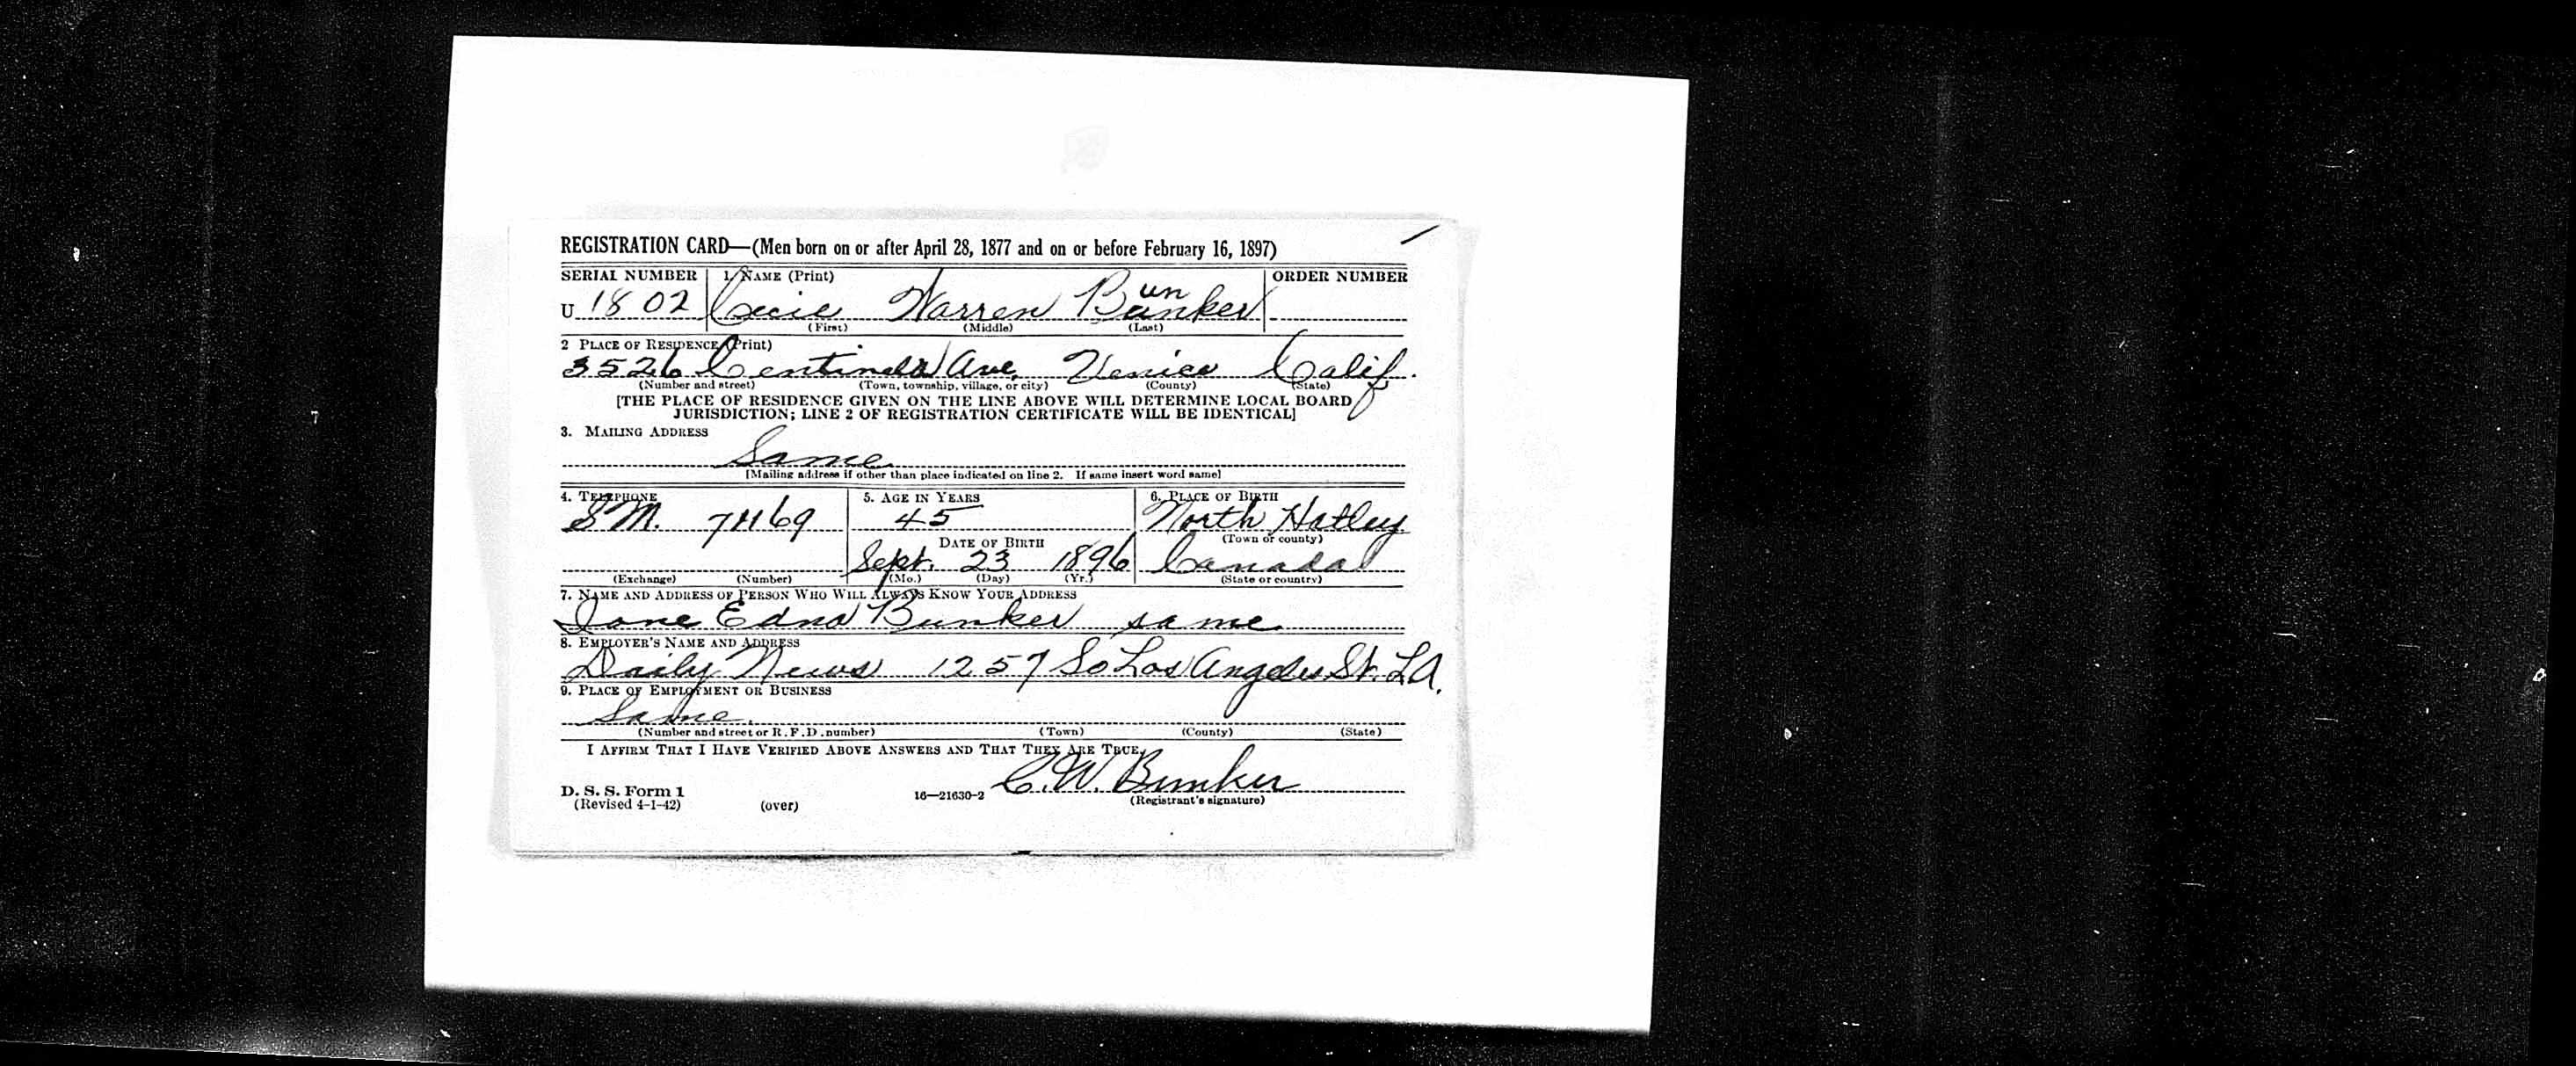 REGISTRATION CARD—(Men born on or after April 28, 1877 and on or before February 16, 1897)
SERIAL NUMBER 1. NAME (Print) ORDER NUMBER
un
U 1802 Cecil Warren Bunker
(First) (Middle) (Last)
2 PLACE OF RESIDENCE (Print)
3526 Centinela Ave. Venice Calif.
(Number and street) (Town, township, village, or city) (County) (State)
[THE PLACE OF RESIDENCE GIVEN ON THE LINE ABOVE WILL DETERMINE LOCAL BOARD
JURISDICTION; LINE 2 OF REGISTRATION CERTIFICATE WILL BE IDENTICAL]
3. MAILING ADDRESS
Same
[Mailing address if other than place indicated on line 2. If same insert word same]
4. TELEPHONE 5. AGE IN YEARS 6. PLACE OF BIRTH
S.M. 45 North Hatley
DATE OF BIRTH (Town or county)
Sept. 23 1896 Canada
(Exchange) (Number) (Mo.) (Day) (Yr.) (State or country)
7. NAME AND ADDRESS OF PERSON WHO WILL ALWAYS KNOW YOUR ADDRESS
Edna Bunker same
8. EMPLOYER'S NAME AND ADDRESS
Daily News 1257 So Los Angeles St. L.A.
9. PLACE OF EMPLOYMENT OR BUSINESS
Same.
(Number and street or R. F. D. number) (Town) (County) (State)
I AFFIRM THAT I HAVE VERIFIED ABOVE ANSWERS AND THAT THEY ARE TRUE.
C. W. Bunker
D. S. S. Form 1
(Revised 4-1-42) (over) 16—21630-2 (Registrant's signature)